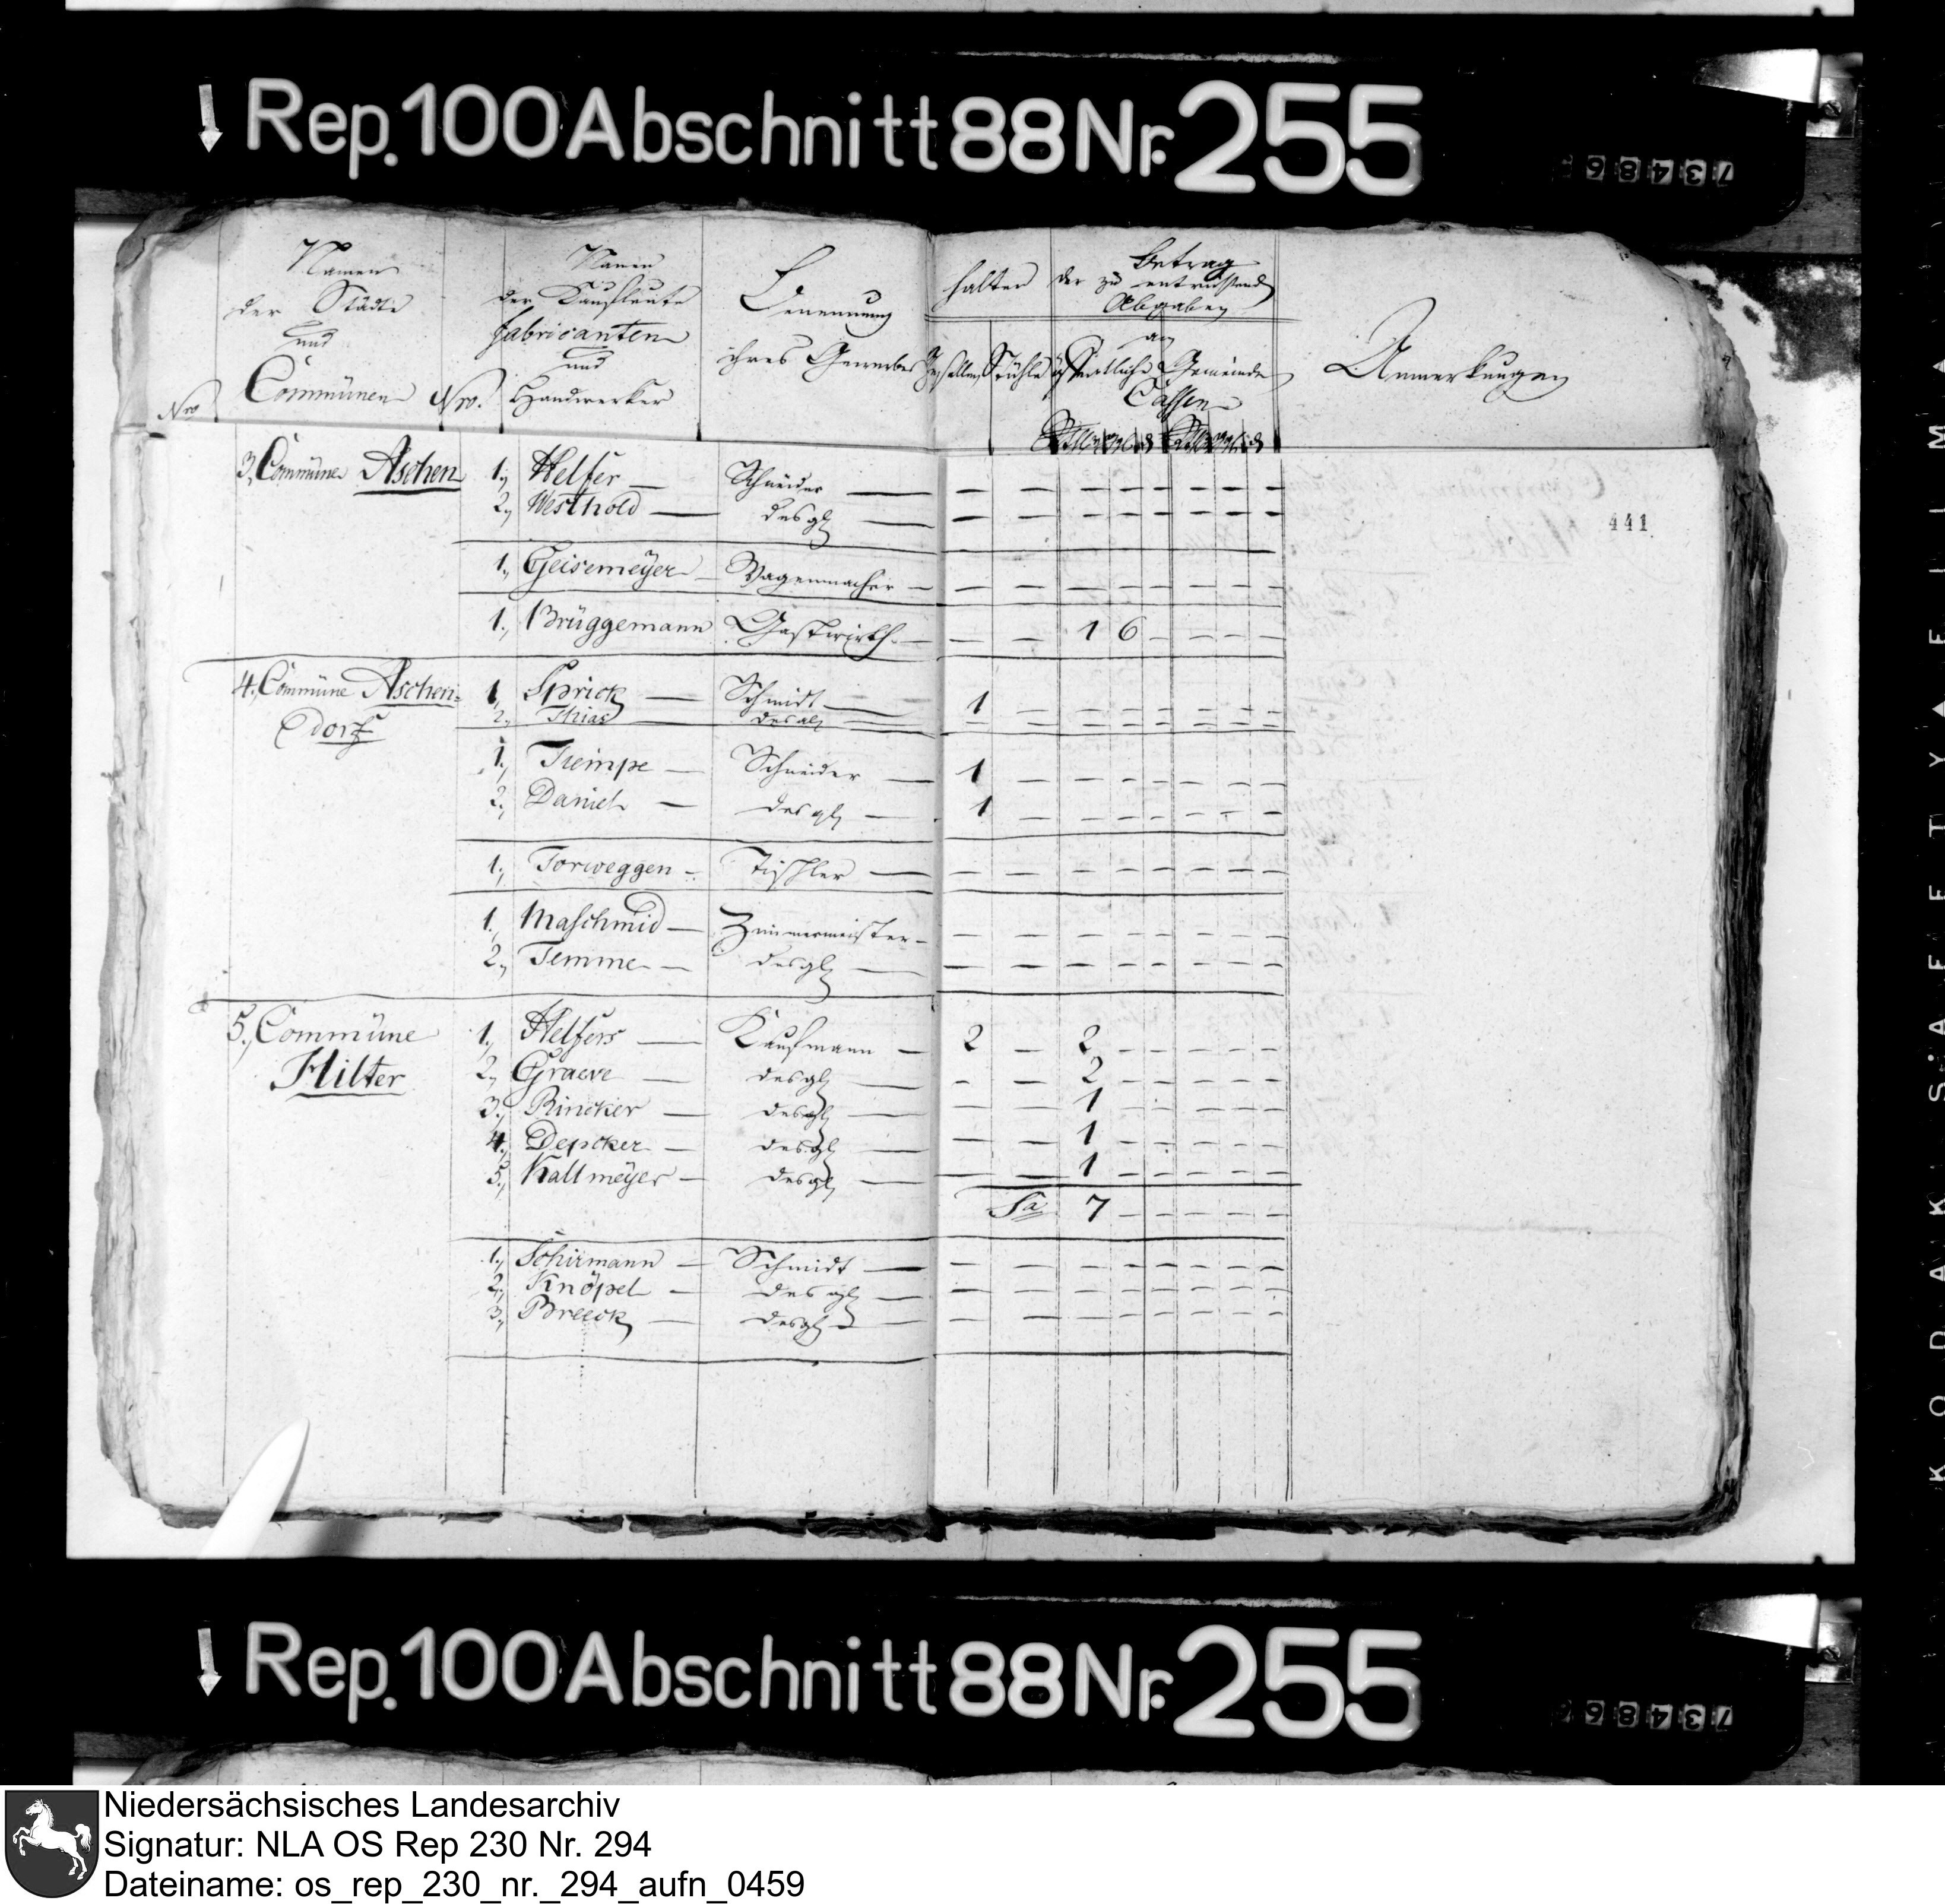 Rep. 100 Abschnitt 88 Nr. 255
73486
Nro
Namen
der Städte
und
Commünen
Nro.
Namen
der Kaufleute
Fabricanten
und
Handwerker
Benennung
ihres Gewerbes
halten
Gesellen
Stühle
Betrag
der zu entrichtend
Abgaben
an
öffentliche Gemeinde
Cassen
Anmerkungen
441
3, Commüne Aschen 1, Helfer — Schneider — — — — — — — — —
2, Westhold — desgl — — — — — — — — —
1, Geisemeÿer — Wagenmacher — — — — — — — — —
1, Brüggemann Gastwirth — — — 1 6 — — — —
4, Commüne Aschen= 1, Sprick — Schmidt — 1 — — — — — — —
dorf
2, Thias — desgl — — — — — — — — —
1, Tiempe — Schneider — 1 — — — — — — —
2, Daniel — desgl — 1 — — — — — — —
1, Torweggen — Tischler — — — — — — — — —
1, Maschmid — Zimmermeister — — — — — — — — —
2, Temme — desgl — — — — — — — — —
5, Commüne 1, Helfers — Kaufmann — 2 — 2 — — — — —
Hilter 2, Graeve — desgl — — — 2 — — — — —
3, Rincker — desgl — — — 1 — — — — —
4, Depcker — desgl — — — 1 — — — — —
5, Kallmeÿer — desgl — — — 1 — — — — —
Sa 7 — — — — —
1, Schirmann — Schmidt — — — — — — — — —
2, Knöpel — desgl — — — — — — — — —
3, Breeck — desgl — — — — — — — — —
Rep. 100 Abschnitt 88 Nr. 255
73486
Niedersächsisches Landesarchiv
Signatur: NLA OS Rep 230 Nr. 294
Dateiname: os_rep_230_nr._294_aufn_0459